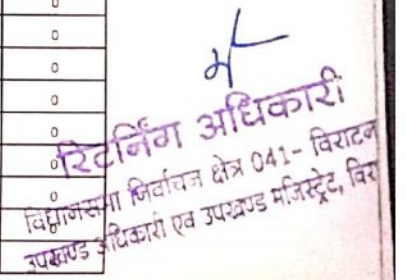 0
0
0
0
0
0
0
0
0
0
रिटर्निंग अधिकारी
विधानसभा निर्वाचन क्षेत्र 041- विराटन
उपखण्ड अधिकारी एवं उपखण्ड मजिस्ट्रेट, विरा